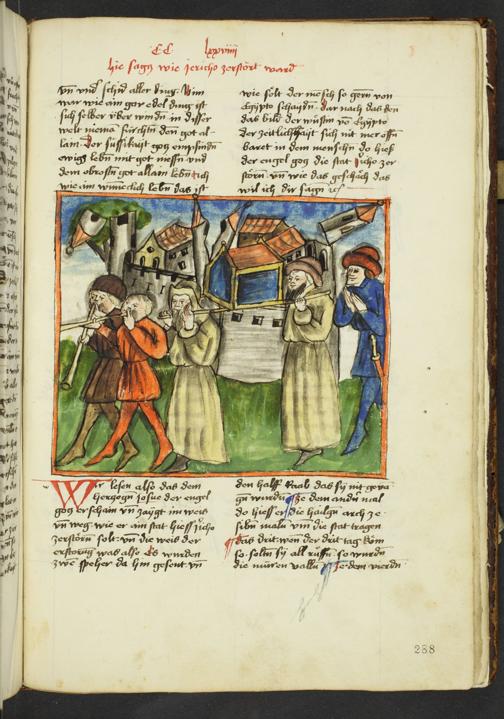 CC lxxviiii
hie sagn wie jericho zerstört ward
vn vnd schnd aller ding
war wie ain gar edel ding ist
sich selber über windn in diser
welt niema fürchtn den got al-
lain Der sussikayt gog empfindn
ewigs lebn mit got messn vnd
dem obrostn got allain lebn
wie ain wunklich lebn das ist
wie solt der mesch so gern von
Egipto schaydn dar nach das den
das bild der wüstn vo Egipto
der zeitlichkayt sich nit mer offn
baret in dem menschn do hieß
der engel gog die stat jricho zer
störn vn wie das geschach das
wil ich dir sagn
Wir lesen also das dem
hertzogn josue der engel
gog erschain vn zaygt im weis
vn weg wie er ain stat hiess jricho
zerstörn solt vn die weis der
erstörug was also Es wurden
zwe speher da hin gesent vn
den halff Raab das sy nit geva
gn wurdn Ze dem andn mal
do hiess er die hailgn arch ze
sibn maln vm die stat tragen
Das drit wen der drit tag köm
so soltn sy all rüffn so wurdn
die muren valln Ze dem vierdn
288